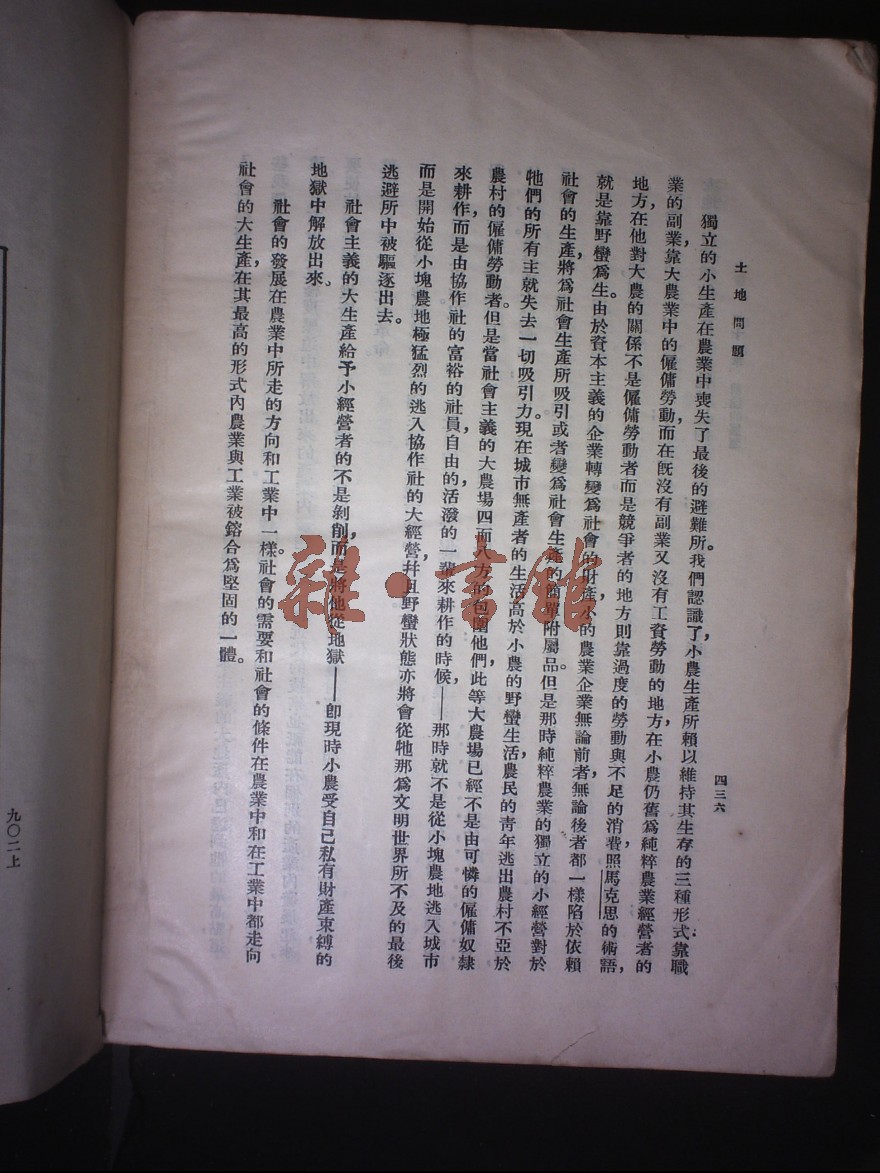 土地問題
四三六
獨立的小生產在農業中喪失了最後的避難所。我們認識了，小農生產所賴以維持其生存的三種形式：靠職
業的副業，靠大農業中的僱傭勞動，而在旣沒有副業又沒有工資勞動的地方，在小農仍舊爲純粹農業經營者的
地方，在他對大農的關係不是僱傭勞動者而是競爭者的地方，則靠過度的勞動與不足的消費，照馬克思的術語，
就是靠野蠻爲生。由於資本主義的企業轉變爲社會的財產，小的農業企業無論前者，無論後者都一樣陷於依賴
社會的生產，將爲社會生產所吸引或者變爲社會生產的簡單附屬品。但是那時純粹農業的獨立的小經營對於
牠們的所有主就失去一切吸引力。現在城市無產者的生活高於小農的野蠻生活，農民的青年逃出農村不亞於
農村的僱傭勞動者。但是當社會主義的大農場四面八方的包圍他們，此等大農場已經不是由可憐的僱傭奴隸
來耕作，而是由協作社的富裕的社員自由的活潑的一輩來耕作的時候，——那時就不是從小塊農地逃入城市
而是開始從小塊農地極猛烈的逃入協作社的大經營，幷且野蠻狀態亦將會從牠那爲文明世界所不及的最後
逃避所中被驅逐出去。
社會主義的大生產給予小經營者的不是剝削，而是將他從地獄——卽現時小農受自己私有財產束縛的
地獄中解放出來。
社會的發展在農業中所走的方向和工業中一樣。社會的需要和社會的條件在農業中和在工業中都走向
社會的大生產，在其最高的形式內農業與工業被鎔合爲堅固的一體。
九〇二上
雜·書館